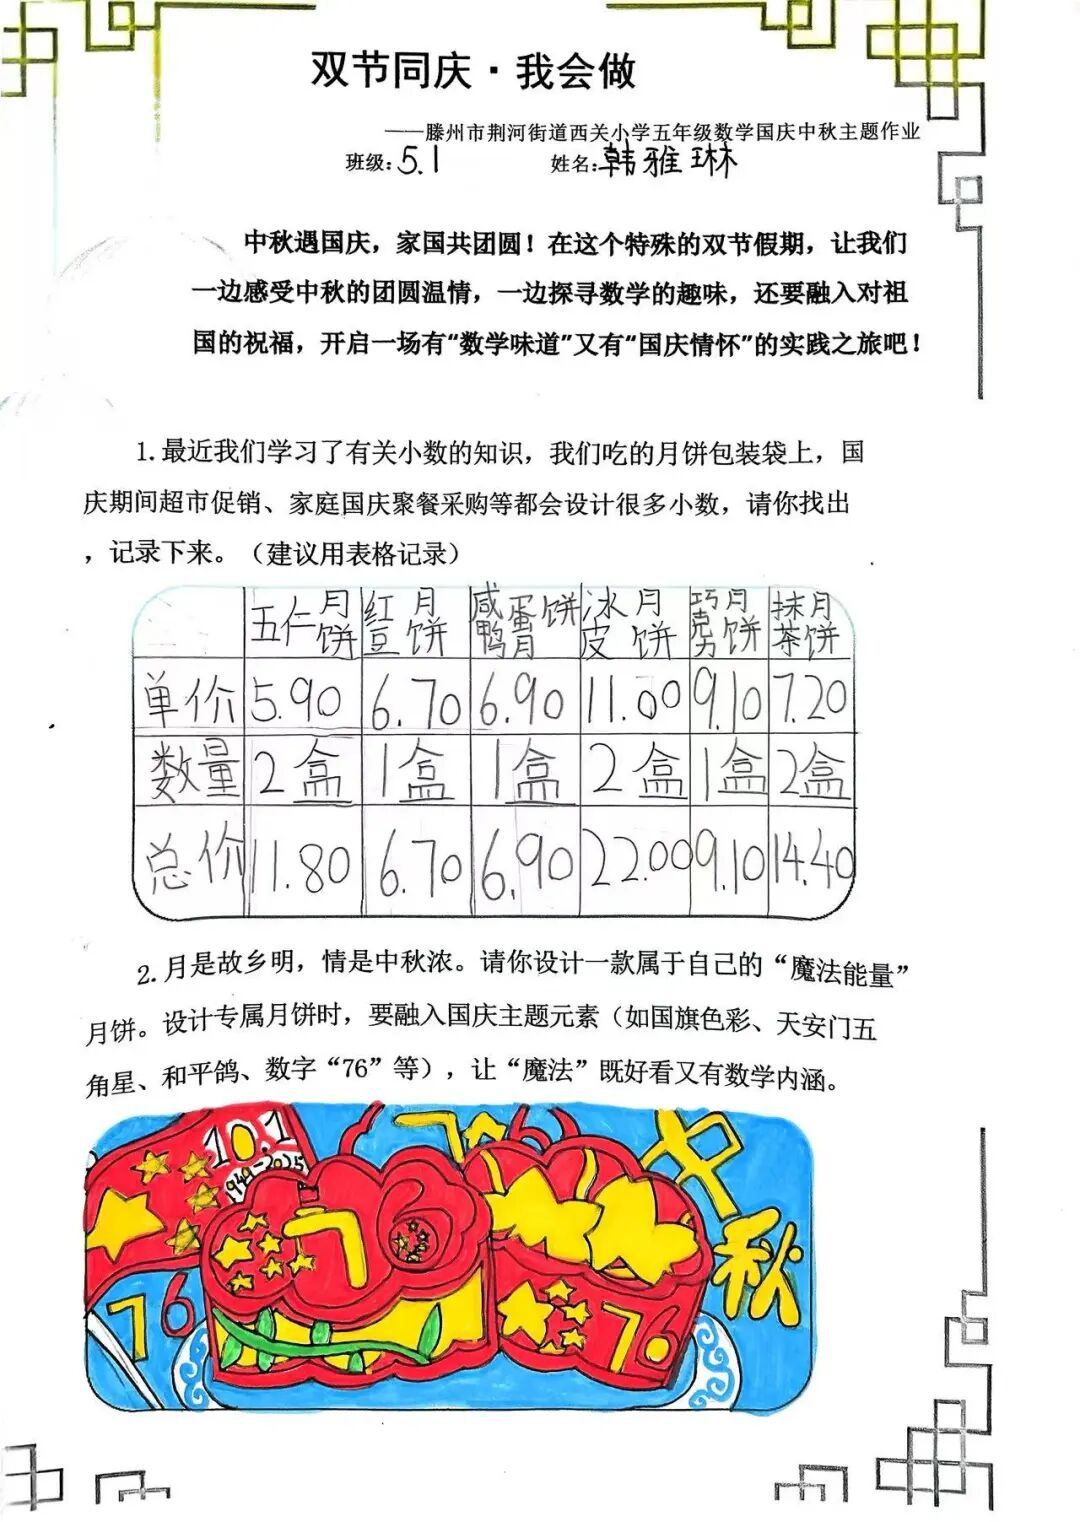 双节同庆·我会做
——滕州市荆河街道西关小学五年级数学国庆中秋主题作业
班级:5.1 姓名:韩雅琳
中秋遇国庆，家国共团圆！在这个特殊的双节假期，让我们
一边感受中秋的团圆温情，一边探寻数学的趣味，还要融入对祖
国的祝福，开启一场有“数学味道”又有“国庆情怀”的实践之旅吧！
1.最近我们学习了有关小数的知识，我们吃的月饼包装袋上，国
庆期间超市促销、家庭国庆聚餐采购等都会设计很多小数，请你找出
，记录下来。（建议用表格记录）
五仁月饼 红豆月饼 咸鸭蛋月饼 冰皮月饼 巧克力月饼 抹茶月饼
单价 5.90 6.70 6.90 11.00 9.10 7.20
数量 2盒 1盒 1盒 2盒 1盒 2盒
总价 11.80 6.70 6.90 22.00 9.10 14.40
2.月是故乡明，情是中秋浓。请你设计一款属于自己的“魔法能量”
月饼。设计专属月饼时，要融入国庆主题元素（如国旗色彩、天安门五
角星、和平鸽、数字“76”等），让“魔法”既好看又有数学内涵。
10.1
1949-2025
76
中秋
76
76
76